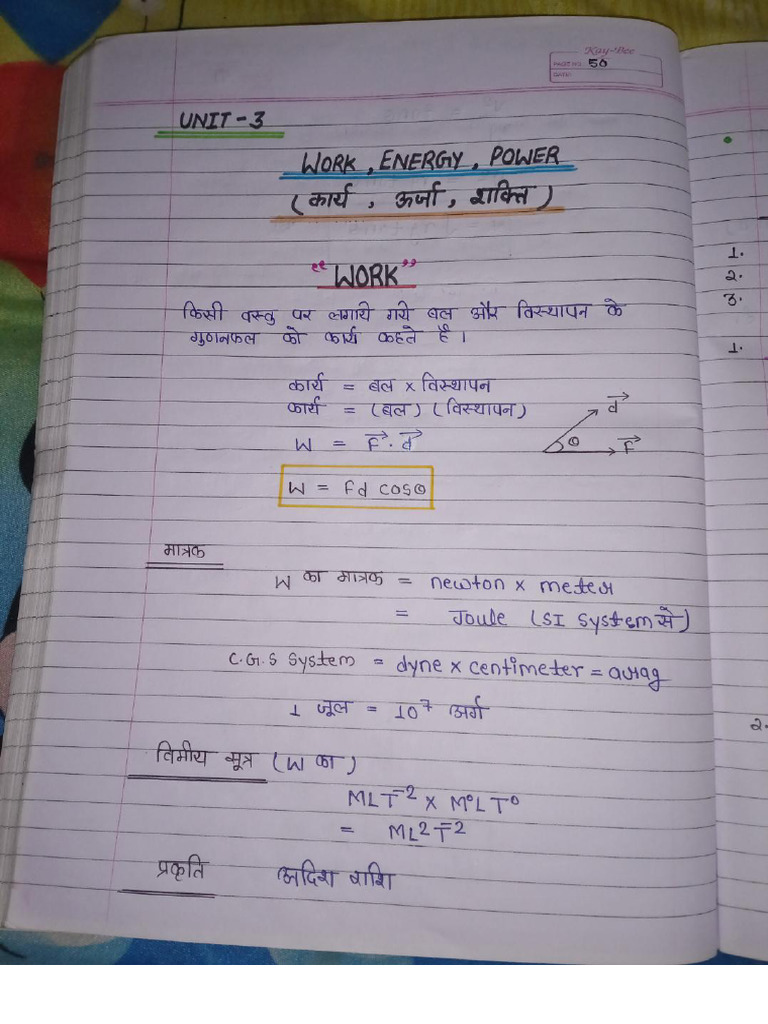 Kay-Dee
PAGE NO. 50
DATE
UNIT-3
WORK, ENERGY, POWER
(कार्य, ऊर्जा, शक्ति)
"WORK"
किसी वस्तु पर लगाये गये बल और विस्थापन के
गुणनफल को कार्य कहते है।
कार्य = बल x विस्थापन
कार्य = (बल) (विस्थापन)
W = F⃗. d⃗
d⃗
θ
F⃗
W = Fd cosθ
मात्रक
W का मात्रक = newton x meter
= Joule (SI System से)
C.G.S System = dyne x centimeter =
1 जूल = 10⁷ अर्ग
विमीय सूत्र (W का)
MLT⁻² x M⁰LT⁰
= ML²T⁻²
प्रकृति अदिश राशि
1.
2.
3.
1.
2.